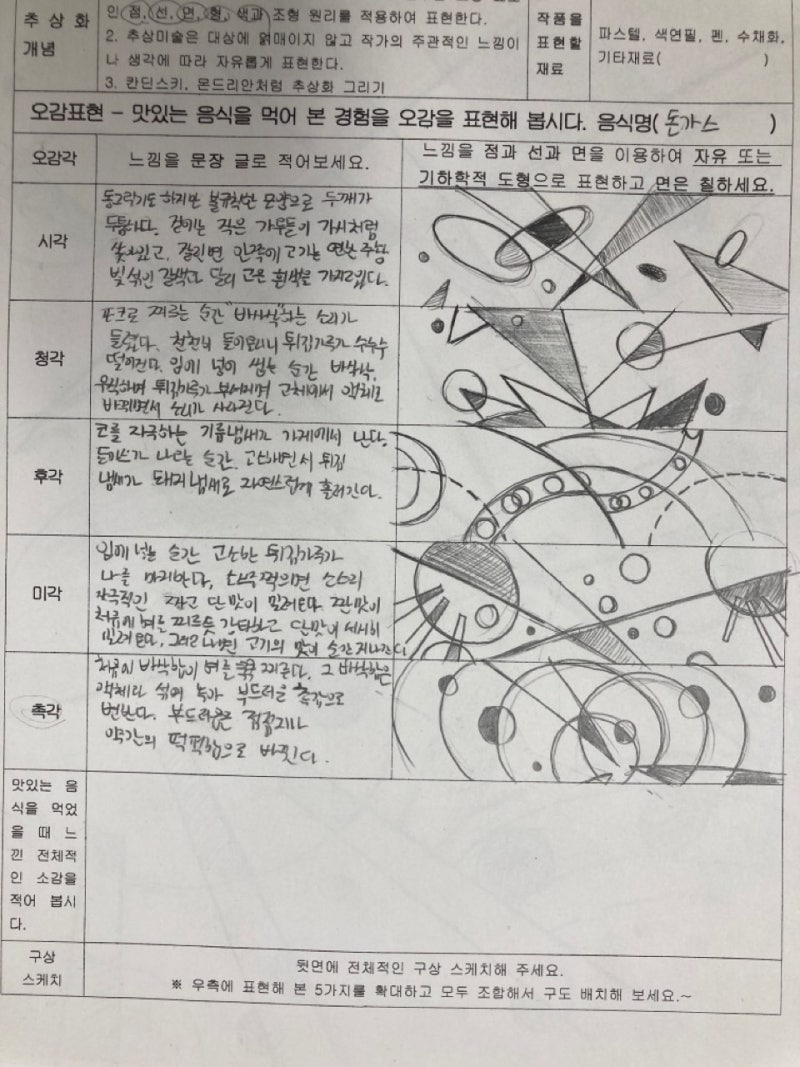 추상화
개념
인 점, 선, 면, 형, 색과 조형 원리를 적용하여 표현한다.
2. 추상미술은 대상에 얽매이지 않고 작가의 주관적인 느낌이
나 생각에 따라 자유롭게 표현한다.
3. 칸딘스키, 몬드리안처럼 추상화 그리기
작품을
표현할
재료
파스텔, 색연필, 펜, 수채화,
기타재료( )
오감표현 - 맛있는 음식을 먹어 본 경험을 오감을 표현해 봅시다. 음식명( 돈가스 )
오감각
느낌을 문장 글로 적어보세요.
느낌을 점과 선과 면을 이용하여 자유 또는
기하학적 도형으로 표현하고 면은 칠하세요.
시각
동그랗기도 하지만 불규칙한 모양으로 두께가
두툼하다. 겉에는 작은 가루들이 가시처럼
솟아있고, 잘린면 안쪽에 고기는 연한 주황
빛 섞인 갈색과 달리 고운 흰색을 가지고있다.
청각
포크로 찌르는 순간 "바사삭"하는 소리가
들렸다. 천천히 들어올리니 튀김가루가 수수수
떨어진다. 입에 넣어 씹는 순간 바삭삭,
우적하며 튀김가루가 부서지며 고체에서 액체로
바뀌면서 소리가 사라진다.
후각
코를 자극하는 기름냄새가 가게에서 난다.
돈까스가 나오는 순간, 고소하면서 튀김
냄새가 돼지냄새로 자연스럽게 흘러간다.
미각
입에 넣는 순간 고소한 튀김가루가
나를 마중한다,
자극적인 짜고 단맛이 밀려온다. 짠맛이
처음에 혀를 찌르듯 강타하고 단맛이 서서히
밀려온다, 그리고 나면 고기의 맛이 순간 지나간다
촉각
처음에 바삭함이 혀를 쿡쿡 찌른다. 그 바삭함은
액체와 섞여 녹아 부드러운 촉감으로
번한다. 부드러움은
약간의 떡떡함으로 바뀐다.
맛있는 음
식을 먹었
을 때 느
낀 전체적
인 소감을
적어 봅시
다.
구상
스케치
뒷면에 전체적인 구상 스케치해 주세요.
※ 우측에 표현해 본 5가지를 확대하고 모두 조합해서 구도 배치해 보세요.~